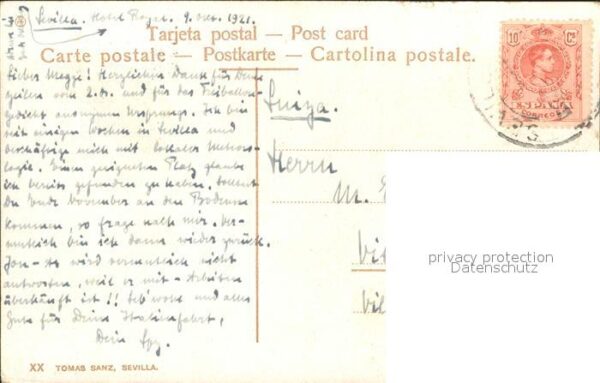 Sevilla. Hotel Royal. 9. Okt. 1921.
Tarjeta postal – Post card
Carte postale – Postkarte – Cartolina postale.
Lieber Megge! Herzlichen Dank für Deine
Zeilen vom 2. ds. und für das Freiballon-
gedicht anonymen Ursprungs. Ich bin
seit einigen Wochen in Sevilla und
beschäftige mich mit lokaler Meteoro-
logie. Einen geeigneten Platz glaube
ich bereits gefunden zu haben. Solltest
Du Ende November an den Bodensee
kommen, so frage nach mir. Ver-
mutlich bin ich dann wieder zurück.
wird vermutlich nicht
antworten, weil er mit Arbeiten
überhäuft ist!! Leb' wohl und alles
Gute für Deine Italienfahrt,
Dein
Suiza.
Herrn
M.
10 Cs
CORREOS
SEVILLA
privacy protection
Datenschutz
XX TOMAS SANZ, SEVILLA.